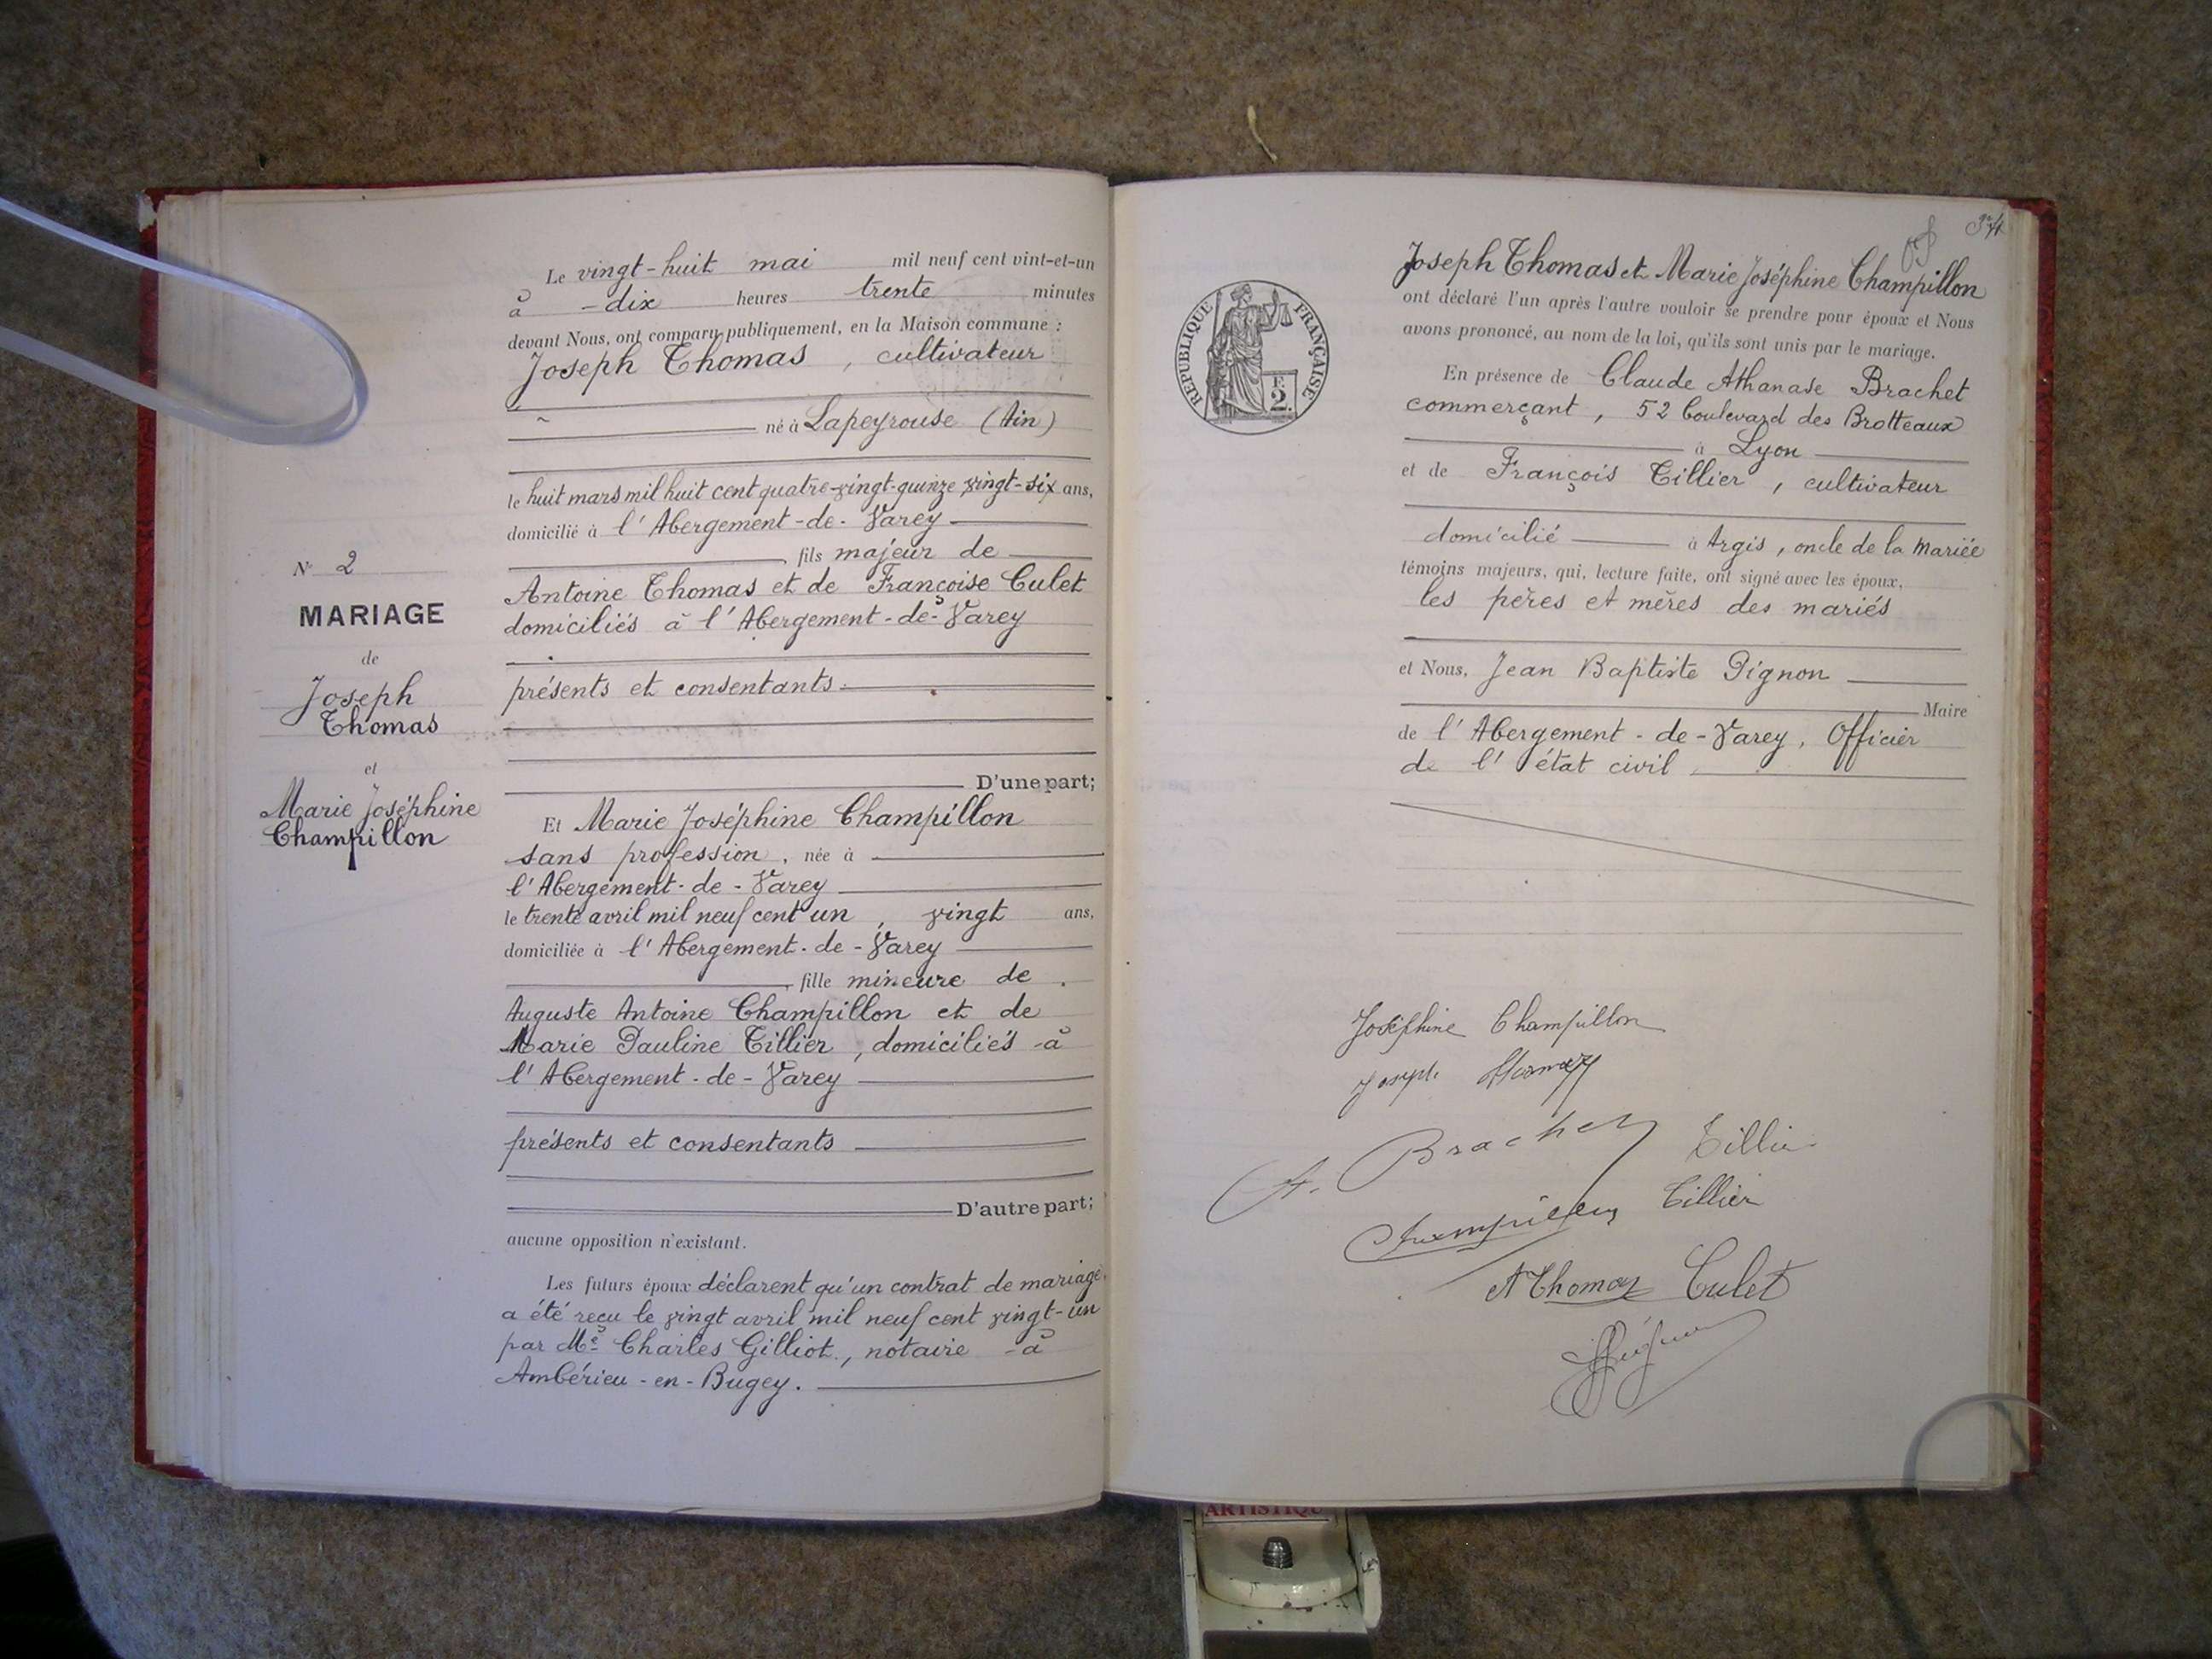 N° 2
MARIAGE
de
Joseph
Thomas
et
Marie Joséphine
Champillon
Le vingt-huit mai mil neuf cent vint-et-un
à dix heures trente minutes
devant Nous, ont comparu publiquement, en la Maison commune :
Joseph Thomas, cultivateur
né à Lapeyrouse (Ain)
le huit mars mil huit cent quatre-vingt-quinze vingt-six ans,
domicilié à l'Abergement-de-Varey
fils majeur de
Antoine Thomas et de Françoise Culet
domiciliés à l'Abergement-de-Varey
présents et consentants
D'une part;
Et Marie Joséphine Champillon
sans profession, née à
l'Abergement-de-Varey
le trente avril mil neuf cent un, vingt ans,
domiciliée à l'Abergement-de-Varey
fille mineure de
Auguste Antoine Champillon et de
Marie Pauline Tillier, domiciliés à
l'Abergement-de-Varey
présents et consentants
D'autre part;
aucune opposition n'existant.
Les futurs époux déclarent qu'un contrat de mariage
a été reçu le vingt avril mil neuf cent vingt-un
par Me Charles Gilliot, notaire à
Ambérieu-en-Bugey.
RÉPUBLIQUE FRANÇAISE
F.
2.
Joseph Thomas et Marie Joséphine Champillon
ont déclaré l'un après l'autre vouloir se prendre pour époux et Nous
avons prononcé, au nom de la loi, qu'ils sont unis par le mariage.
En présence de Claude Athanase Brachet
commerçant, 52 boulevard des Brotteaux
à Lyon
et de François Tillier, cultivateur
domicilié à Argis, oncle de la mariée
témoins majeurs, qui, lecture faite, ont signé avec les époux,
les pères et mères des mariés
et Nous, Jean Baptiste Pignon
Maire
de l'Abergement-de-Varey, Officier
de l'état civil
Joséphine Champillon
Joseph Thomas
A. Brachet Tillier
Champillon Tillier
A Thomas Culet
ARTISTIQU